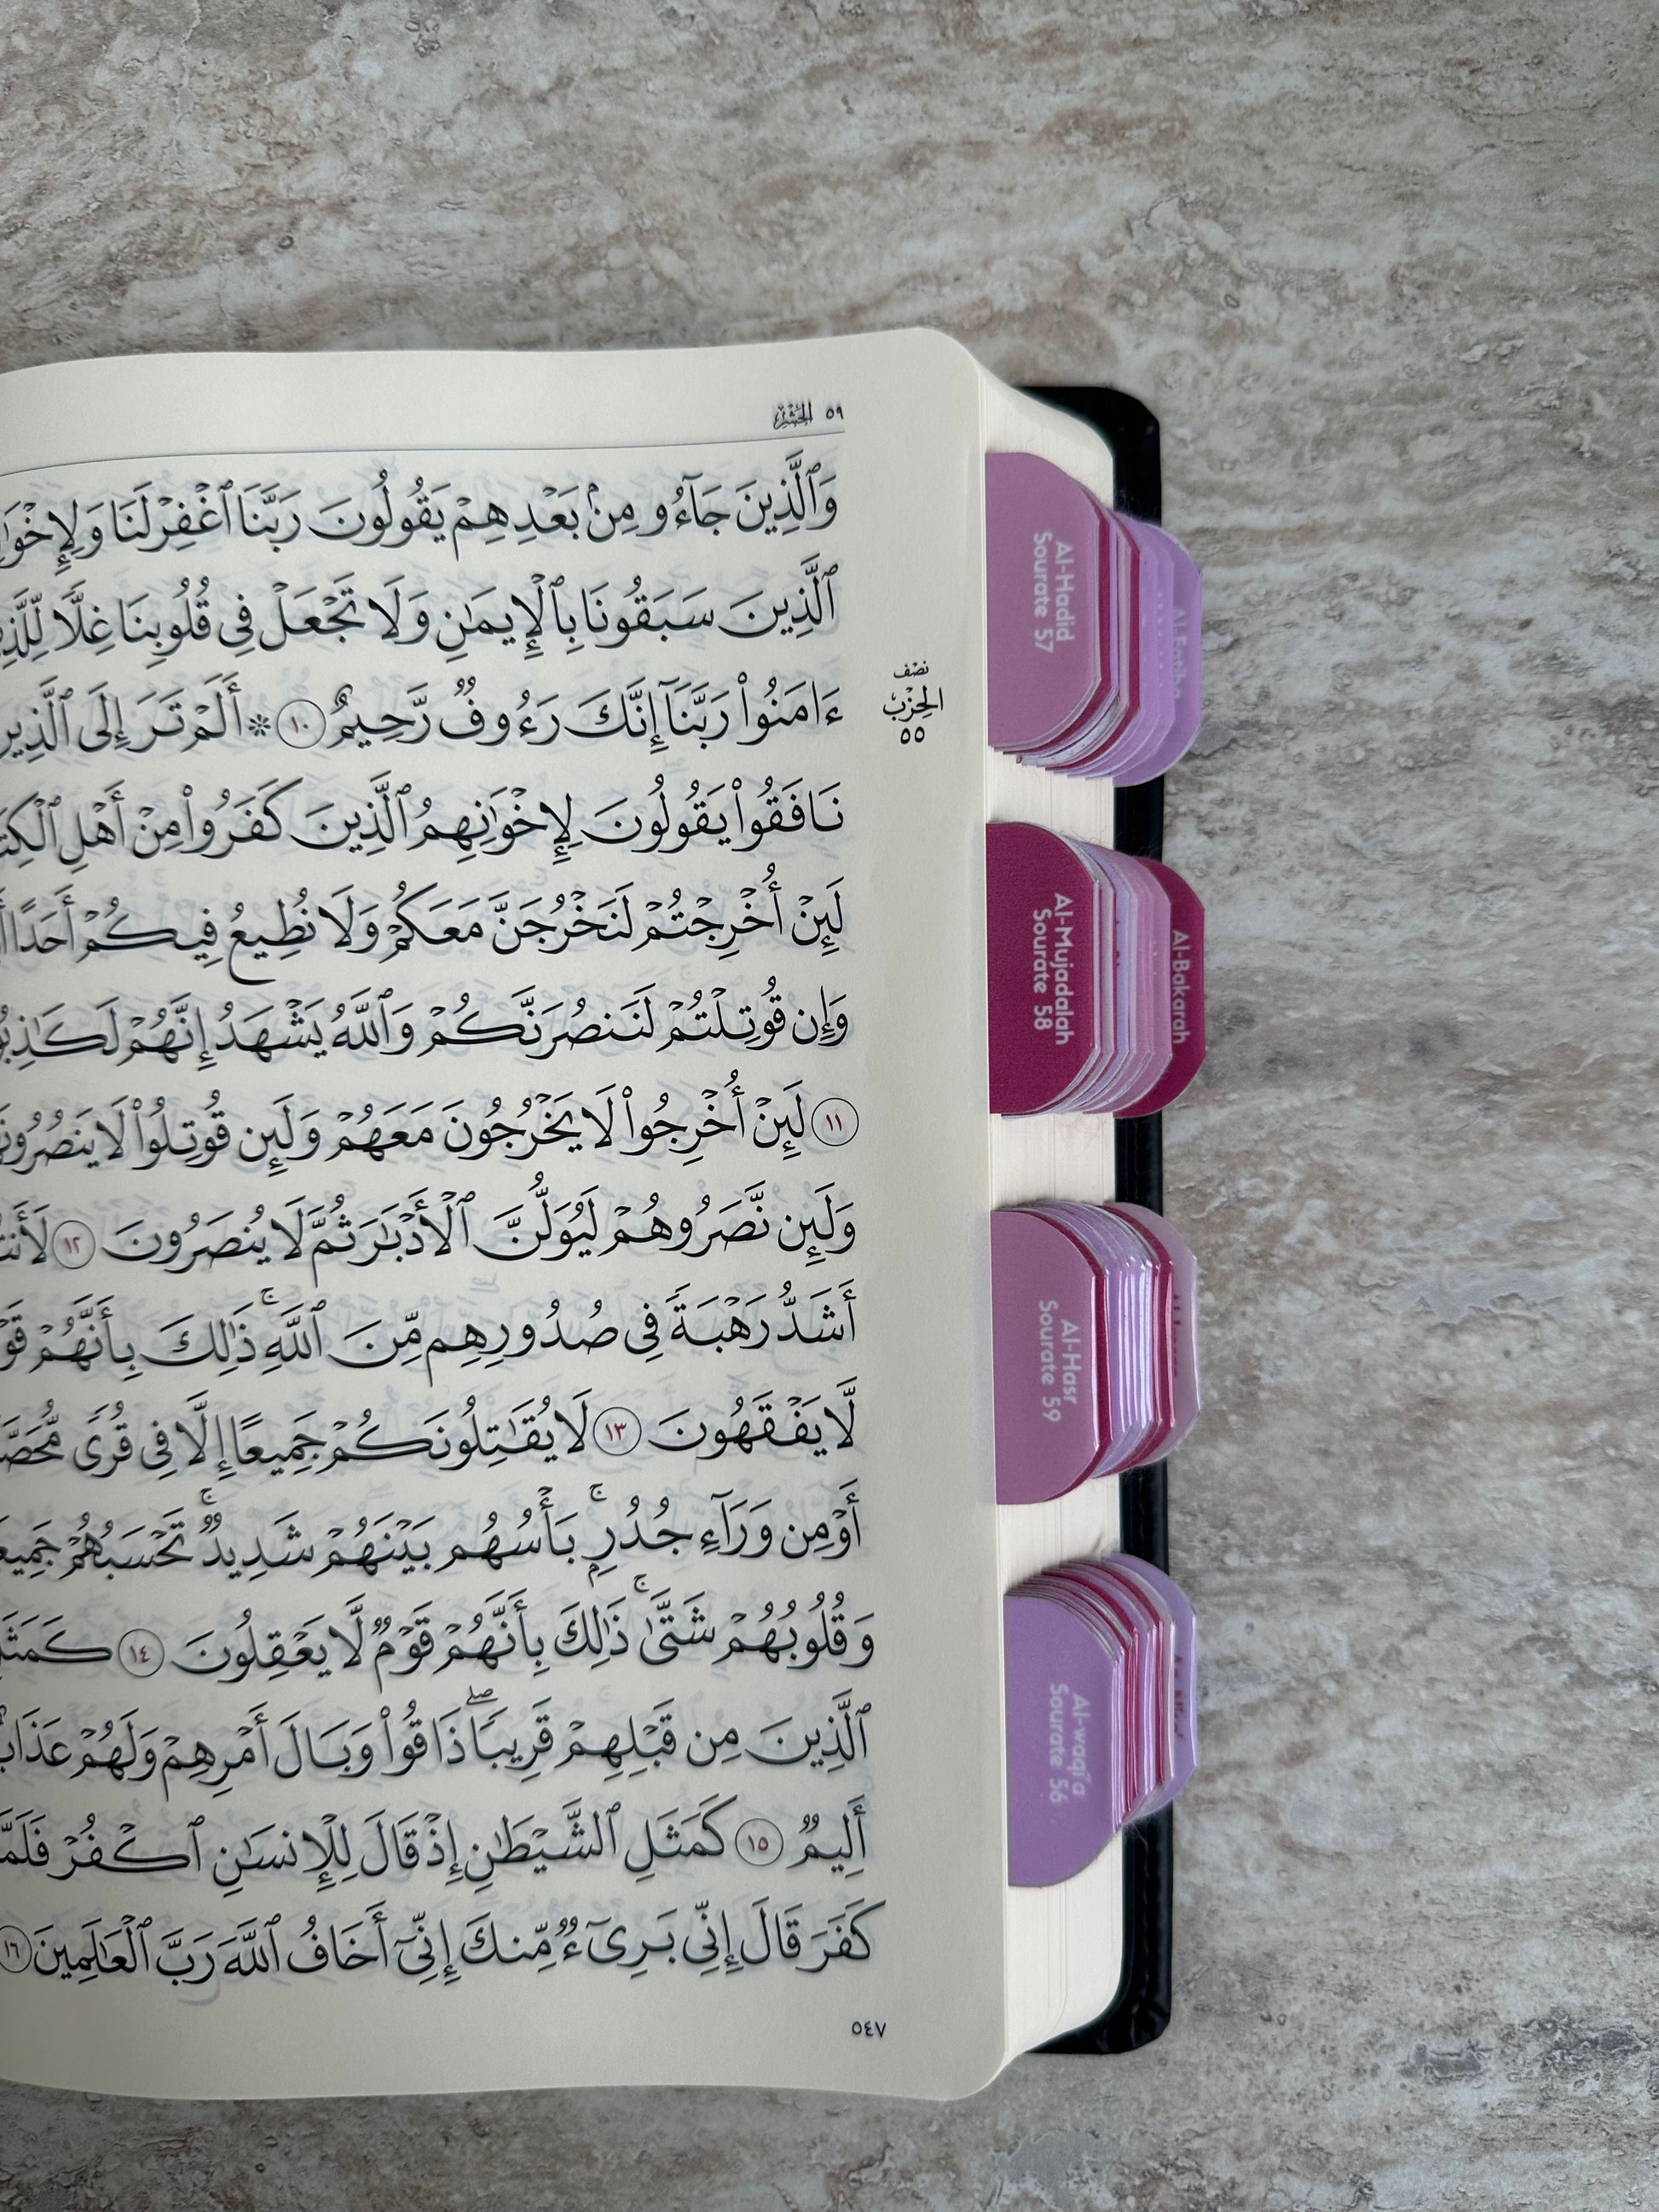 ٥٩ الحَشْرِ
وَٱلَّذِينَ جَآءُو مِنۢ بَعْدِهِمْ يَقُولُونَ رَبَّنَا ٱغْفِرْ لَنَا
ٱلَّذِينَ سَبَقُونَا بِٱلْإِيمَٰنِ وَلَا تَجْعَلْ فِى قُلُوبِنَا غِلًّا
ءَامَنُوا۟ رَبَّنَآ إِنَّكَ رَءُوفٌ رَّحِيمٌ ١٠ * أَلَمْ تَرَ إِلَى
نصْف
الحِزْبْ
٥٥
نَافَقُوا۟ يَقُولُونَ لِإِخْوَٰنِهِمُ ٱلَّذِينَ كَفَرُوا۟ مِنْ أَهْلِ
لَئِنْ أُخْرِجْتُمْ لَنَخْرُجَنَّ مَعَكُمْ وَلَا نُطِيعُ فِيكُمْ أَحَدًا
وَإِن قُوتِلْتُمْ لَنَنصُرَنَّكُمْ وَٱللَّهُ يَشْهَدُ إِنَّهُمْ
١١ لَئِنْ أُخْرِجُوا۟ لَا يَخْرُجُونَ مَعَهُمْ وَلَئِن قُوتِلُوا۟ لَا
وَلَئِن نَّصَرُوهُمْ لَيُوَلُّنَّ ٱلْأَدْبَٰرَ ثُمَّ لَا يُنصَرُونَ ١٢
أَشَدُّ رَهْبَةً فِى صُدُورِهِم مِّنَ ٱللَّهِ ۚ ذَٰلِكَ بِأَنَّهُمْ
لَّا يَفْقَهُونَ ١٣ لَا يُقَٰتِلُونَكُمْ جَمِيعًا إِلَّا فِى قُرًى
أَوْ مِن وَرَآءِ جُدُرٍۭ ۚ بَأْسُهُم بَيْنَهُمْ شَدِيدٌ ۚ تَحْسَبُهُمْ
وَقُلُوبُهُمْ شَتَّىٰ ۚ ذَٰلِكَ بِأَنَّهُمْ قَوْمٌ لَّا يَعْقِلُونَ ١٤
ٱلَّذِينَ مِن قَبْلِهِمْ قَرِيبًا ۖ ذَاقُوا۟ وَبَالَ أَمْرِهِمْ وَلَهُمْ
أَلِيمٌ ١٥ كَمَثَلِ ٱلشَّيْطَٰنِ إِذْ قَالَ لِلْإِنسَٰنِ ٱكْفُرْ
كَفَرَ قَالَ إِنِّى بَرِىٓءٌ مِّنكَ إِنِّىٓ أَخَافُ ٱللَّهَ رَبَّ ٱلْعَٰلَمِينَ ١٦
٥٤٧
Al-Hadid
Sourate 57
Al-Fatiha
Al-Mujadalah
Sourate 58
Al-Bakarah
Al-Hasr
Sourate 59
Al-waqi'a
Sourate 56